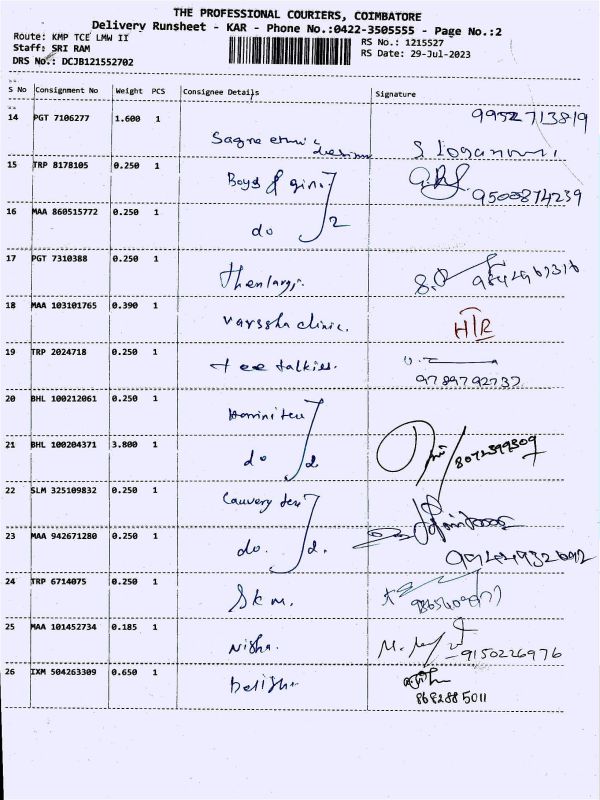 THE PROFESSIONAL COURIERS, COIMBATORE
Delivery Runsheet - KAR - Phone No.:0422-3505555 - Page No.:2
Route: KMP TCE LMW II
RS No.: 1215527
Staff: SRI RAM
RS Date: 29-Jul-2023
DRS No.: DCJB121552702
S No Consignment No Weight PCS Consignee Details Signature
14 PGT 7106277 1.600 1 9952713819
15 TRP 8178105 0.250 1 Boys & 9500874239
16 MAA 860515772 0.250 1 do 2
17 PGT 7310388 0.250 1
18 MAA 103101765 0.390 1 varssha clinic. HR
19 TRP 2024718 0.250 1 tee talkies. 9789792737
20 BHL 100212061 0.250 1
21 BHL 100204371 3.800 1 do 2 8072399309
22 SLM 325109832 0.250 1 Cauvery
23 MAA 942671280 0.250 1 do. 2.
24 TRP 6714075 0.250 1 Skm.
25 MAA 101452734 0.185 1 Nisha. 9150226976
26 IXM 504263309 0.650 1 8682885011